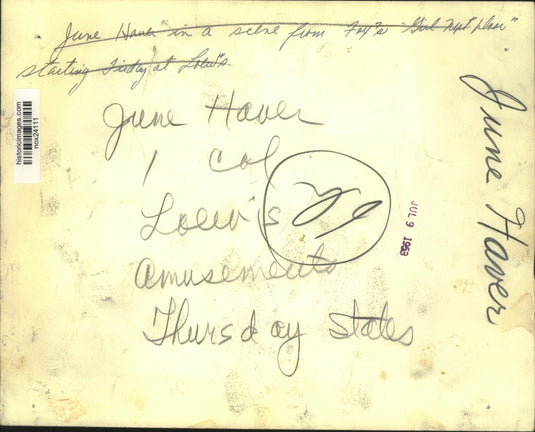 June Haver in a scene from Fox's "Girl Next Door"
starting Friday at Loew's.
June Haver
1 Col
Loew's
Amusements
Thursday States
June Haver
JUL 9 1953
historicimages.com
nox24111